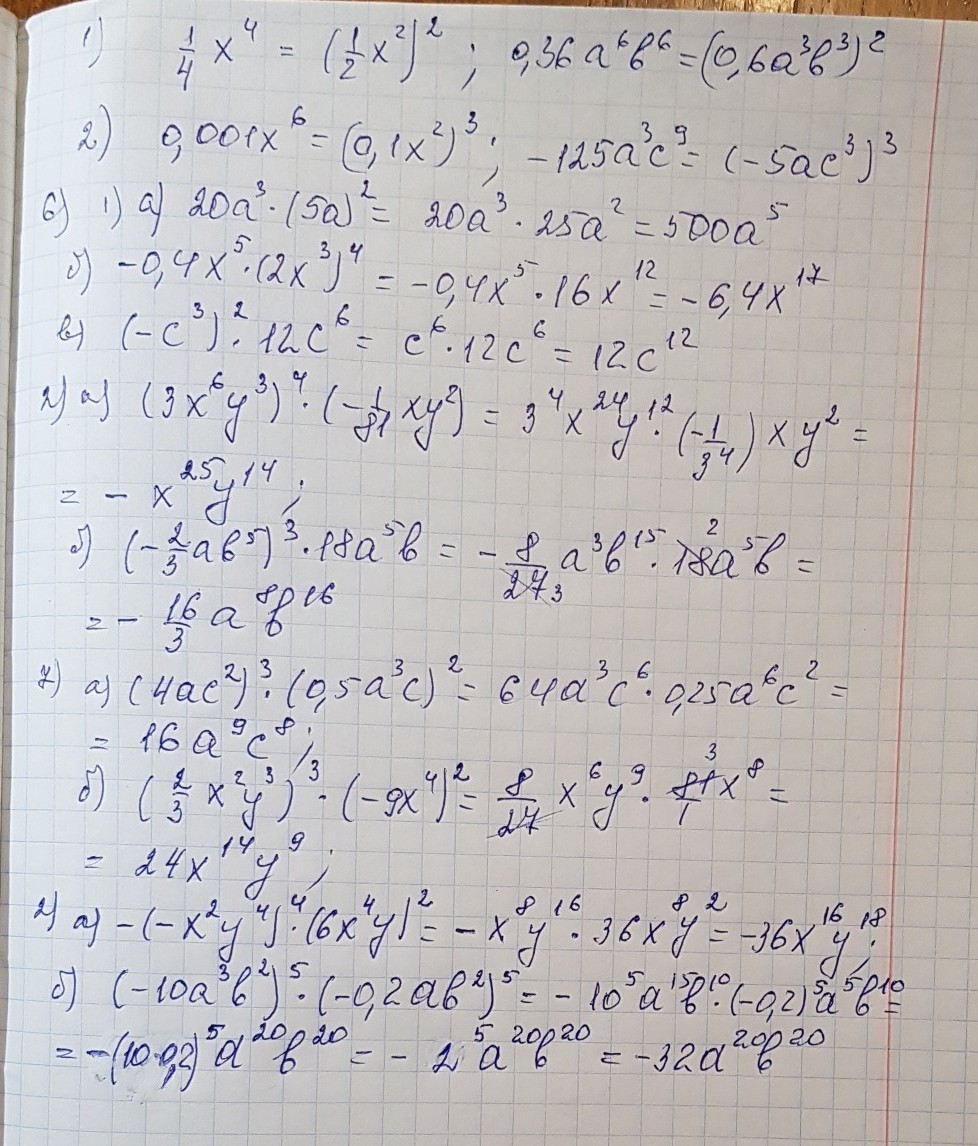 1) 1/4 x⁴ = (1/2 x²)² ; 0,36a⁶b⁶ = (0,6a³b³)²
2) 0,001x⁶ = (0,1x²)³ ; -125a³c⁹ = (-5ac³)³
6) 1) а) 20a³ · (5a)² = 20a³ · 25a² = 500a⁵
б) -0,4x⁵ · (2x³)⁴ = -0,4x⁵ · 16x¹² = -6,4x¹⁷
в) (-c³)² · 12c⁶ = c⁶ · 12c⁶ = 12c¹²
2) а) (3x⁶y³)⁴ · (-1/81 xy²) = 3⁴x²⁴y¹² · (-1/3⁴) xy² =
= - x²⁵y¹⁴ ;
б) (-2/3 ab⁵)³ · 18a⁵b = - 8/27 3 a³b¹⁵ · 18 2 a⁵b =
= - 16/3 a⁸b¹⁶
7) а) (4ac²)³ · (0,5a³c)² = 64a³c⁶ · 0,25a⁶c² =
= 16a⁹c⁸ ;
б) (2/3 x²y³)³ · (-9x⁴)² = 8/27 x⁶y⁹ · 3 81/1 x⁸ =
= 24x¹⁴y⁹ ;
2) а) -(-x²y⁴)⁴ · (6x⁴y)² = -x⁸y¹⁶ · 36x⁸y² = -36x¹⁶y¹⁸ ;
б) (-10a³b²)⁵ · (-0,2ab²)⁵ = -10⁵a¹⁵b¹⁰ · (-0,2)⁵a⁵b¹⁰ =
= -(10·0,2)⁵a²⁰b²⁰ = - 2⁵a²⁰b²⁰ = -32a²⁰b²⁰